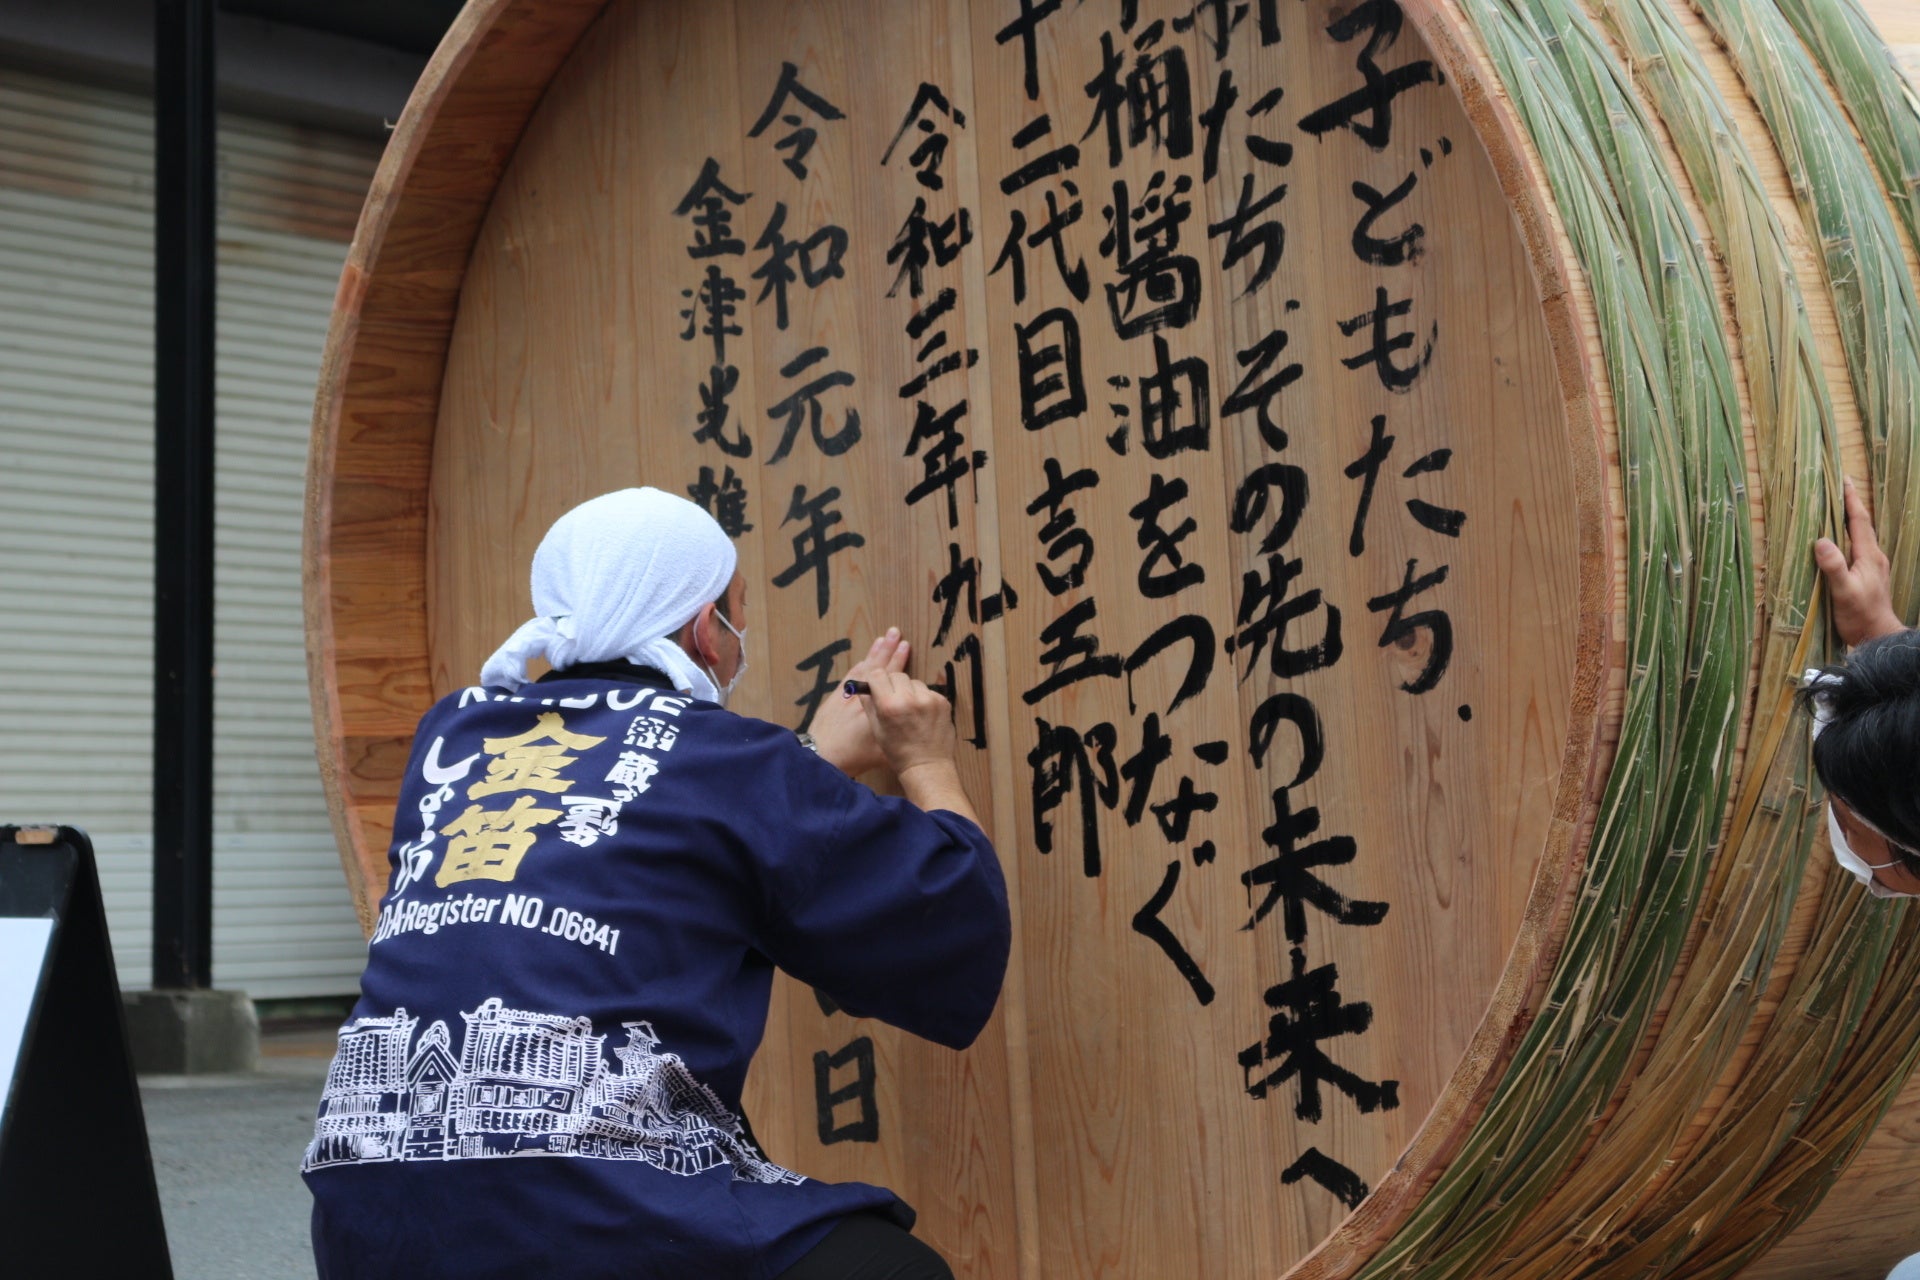 子どもたち、
たち、その先の未来へ
桶醤油をつなぐ
十二代目 吉五郎
令和三年九月
令和元年五 日
金津光雄
金笛
しょうゆ
D.A.Register NO.06841